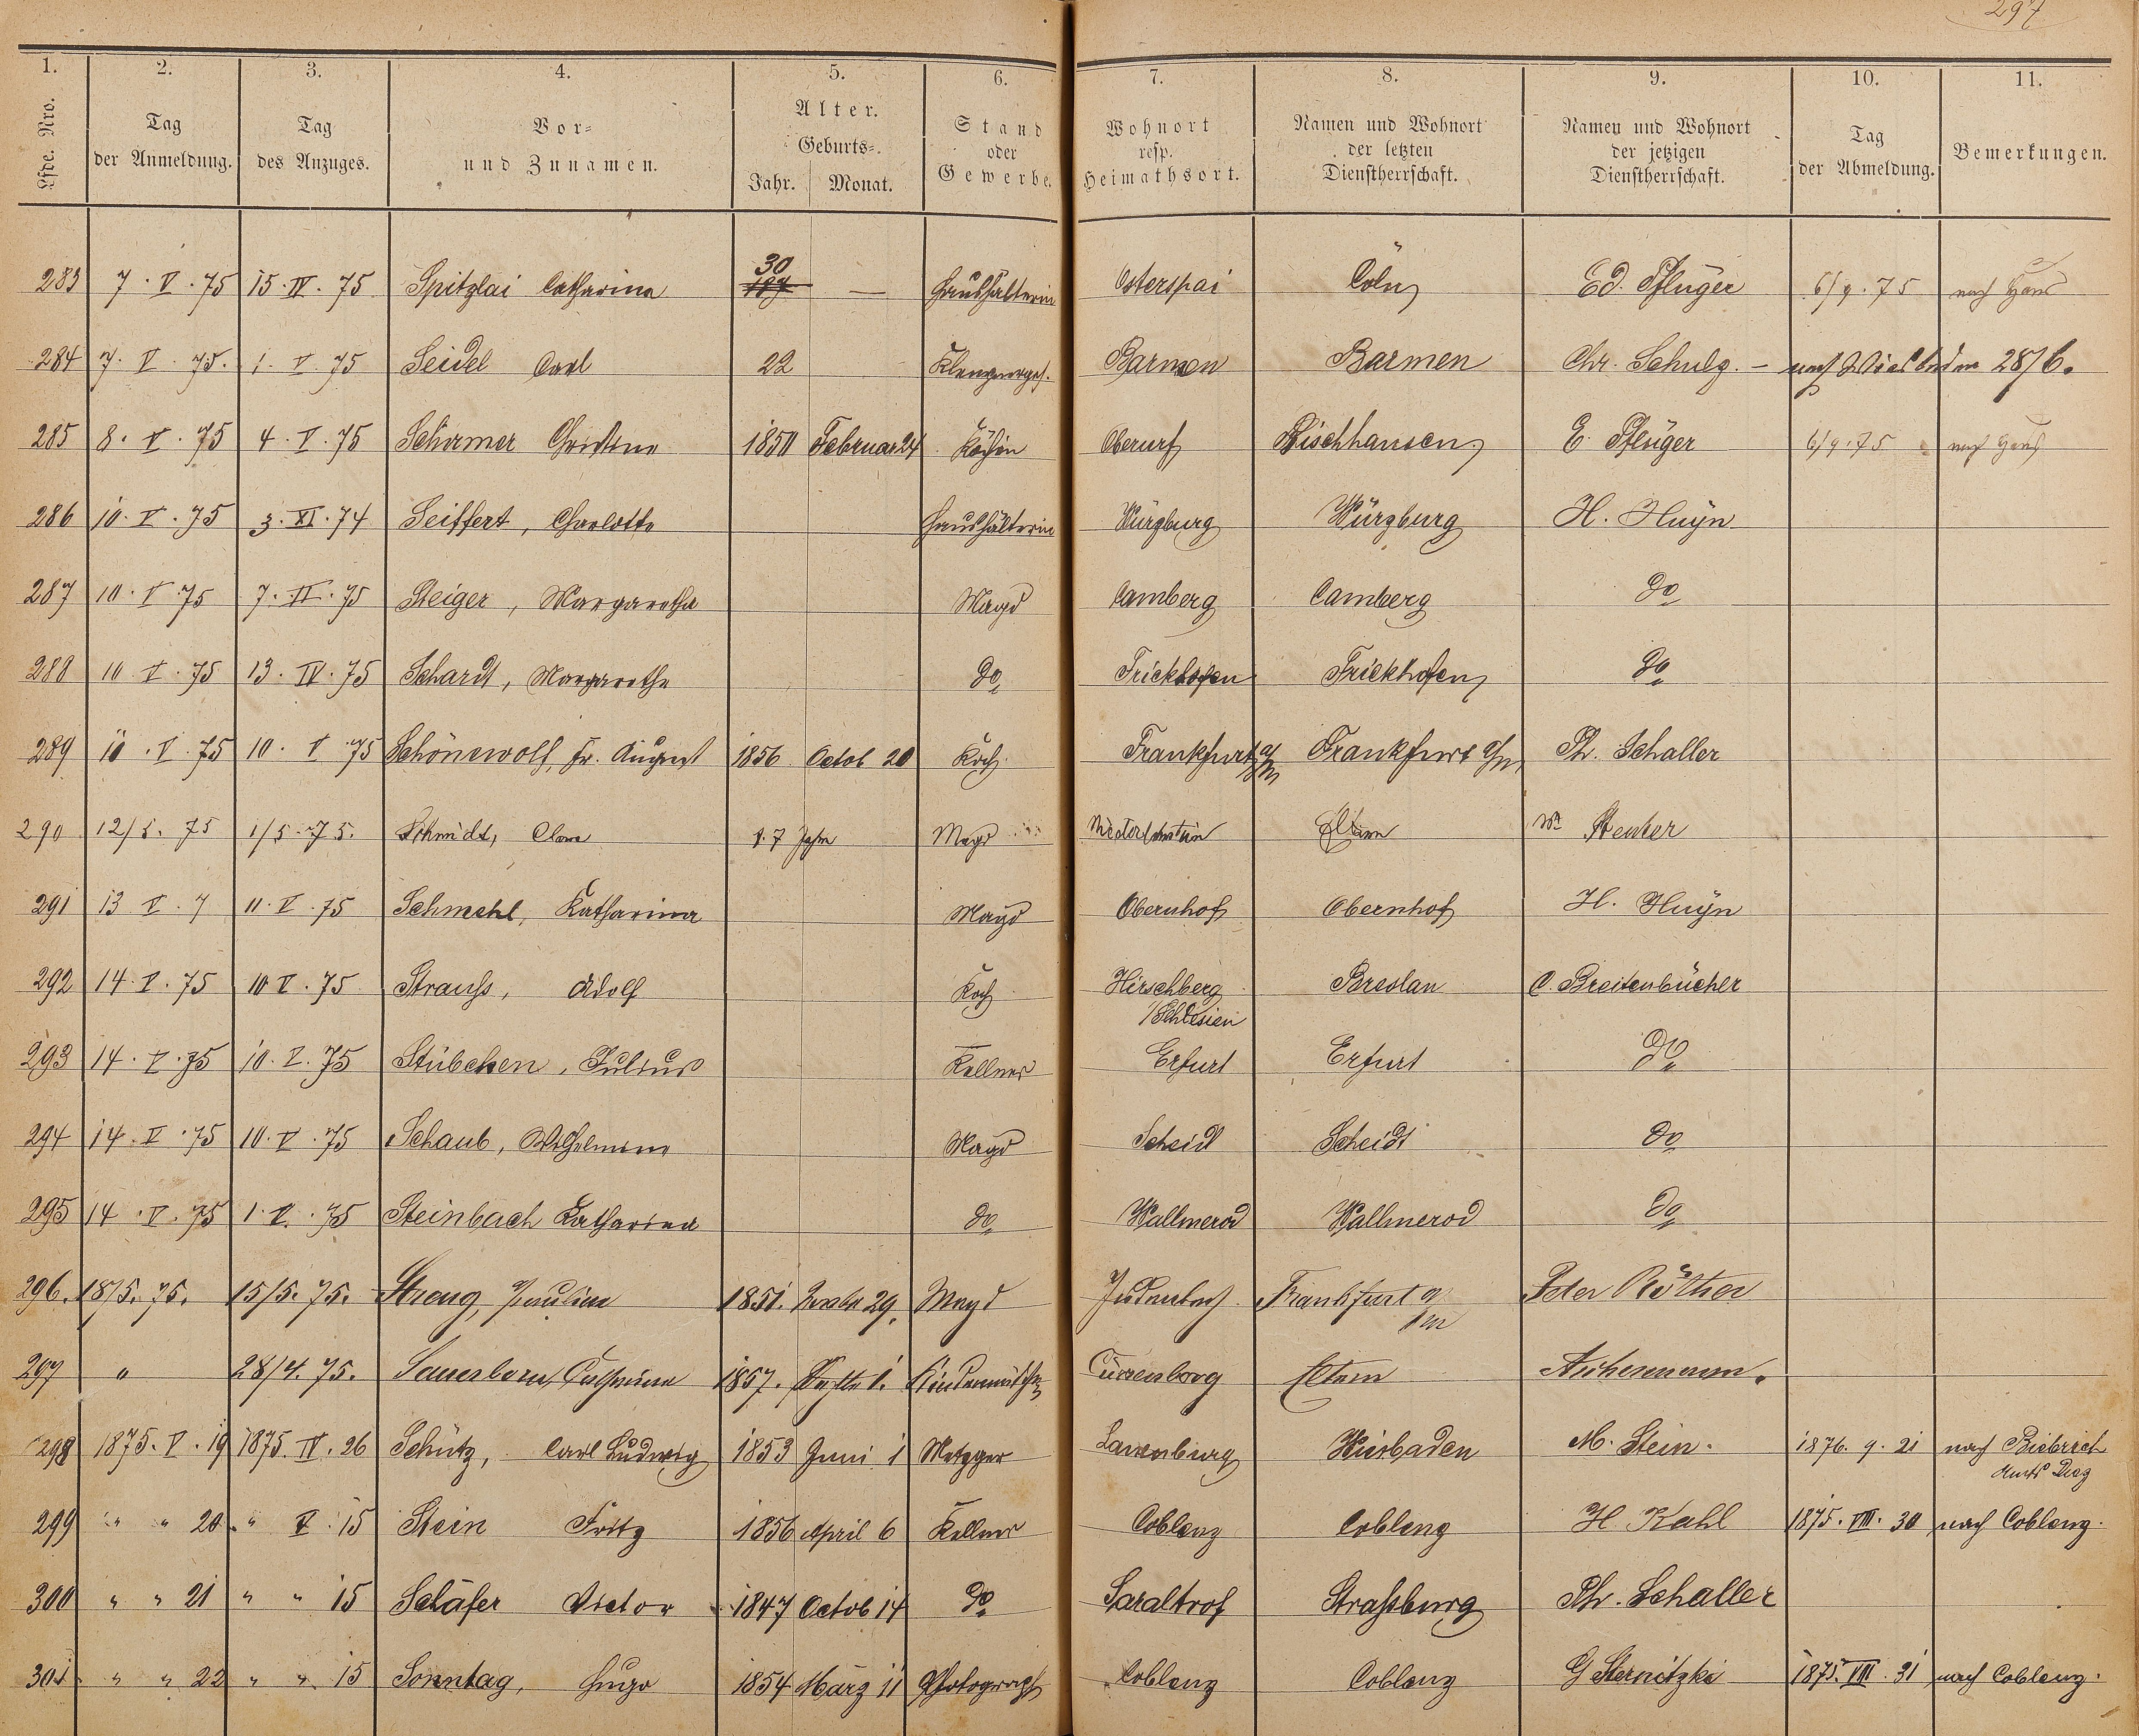 297
1. 2. 3. 4. 5. 6. 7. 8. 9. 10. 11.
Lfde. Nro. Tag der Anmeldung. Tag des Anzuges. Vor- und Zunamen. Alter. Geburts- Jahr. Monat. Stand oder Gewerbe. Wohnort resp. Heimathsort. Namen und Wohnort der letzten Dienstherrschaft. Namen und Wohnort der jetzigen Dienstherrschaft. Tag der Abmeldung. Bemerkungen.
283 7. V. 75 15. IV. 75 Spitzlai Catharina 30 — Haushälterin Osterspai Cöln Ed. Pflüger 6/9. 75 nach Haus
284 7. V. 75. 1. V. 75 Seidel Carl 22 Barmen Barmen Chr. Schulz. — nach Wiesbaden 28/6.
285 8. V. 75 4. V. 75 Schirmer Christine 1850 Februar 24 Köchin Oberurf Bischhausen E. Pflüger 6/9. 75 nach Haus
286 10. V. 75 3. XI. 74 Seiffert, Charlotte Haushälterin Würzburg Würzburg H. Huÿn
287 10. V. 75 7. II. 75 Steiger, Margaretha Magd Camberg Camberg do
288 10 V. 75 13. IV. 75 Schardt, Margarethe do Frickhofen Frickhofen do
289 10. V. 75 10. V 75 Schönewolf, Fr. August 1856 Octob 20 Koch Frankfurt a/m Frankfurt a/m Ph. Schaller
290 12/5. 75 1/5. 75. Schmidt, Clara 17 Jahre Magd Niederlahnstein Eltern We Reuter
291 13 V. 7 11. V. 75 Schmehl, Katharina Magd Obernhof Obernhof H. Huÿn
292 14. V. 75 10 V. 75 Strauß, Adolf Koch Hirschberg Breslau C. Breitenbücher
/Schlesien
293 14. V. 75 10. V. 75 Stübchen, Julius Kellner Erfurt Erfurt do
294 14. V. 75 10. V. 75 Schaub, Wilhelmine Magd Scheid Scheidt do
295 14. V. 75 1. V. 75 Steinbach Katharina do Wallmerod Wallmerod do
296. 18/5. 75. 15/5. 75. Streng, Pauline 1851. 29. Magd Judenbach Frankfurt a/m Peter Röther
297 " 28/4. 75. Sauerborn, Catharina 1857. 1. Kindermädchen Eltern
298 1875. V. 19 1875. IV. 26 Schütz, Carl Ludwig 1853 Juni 1 Metzger Wiesbaden M. Stein. 1876. 9. 21 nach Biebrich
299 " " 20 " V. 15 Stein Fritz 1856 April 6 Kellner Coblenz Coblenz H. Kahl 1875. VIII. 30 nach Coblenz.
300 " " 21 " " 15 Schäfer Victor 1847 Octob 14 do Saraltrof Straßburg Ph. Schaller
301 " " 22 " " 15 Sonntag, Hugo 1854 März 11 Photograph Coblenz Coblenz G Sternitzki 1875. VIII. 31 nach Coblenz.